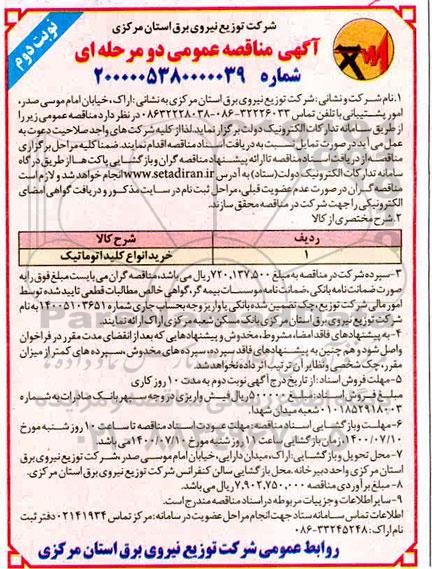 شرکت توزیع نیروی برق استان مرکزی
نوبت دوم
آگهی مناقصه عمومی دو مرحله ای
شماره ۲۰۰۰۰۰۵۳۸۰۰۰۰۰۳۹
۱.نام شرکت و نشانی: شرکت توزیع نیروی برق استان مرکزی به نشانی: اراک، خیابان امام موسی صدر،
امور پشتیبانی با تلفن تماس ۳۲۲۲۶۰۳۳-۰۸۶ ۰۸۶۳۲۲۲۸۰۳۸ در نظر دارد مناقصه عمومی زیر را
از طریق سامانه تدارکات الکترونیک دولت برگزار نماید. لذا از کلیه شرکت های واجد صلاحیت دعوت به
عمل می آید در صورت تمایل نسبت به دریافت اسناد مناقصه اقدام نمایند. ضمنا کلیه مراحل برگزاری
مناقصه از دریافت اسناد مناقصه تا ارائه پیشنهاد مناقصه گران و بازگشایی پاکت ها از طریق درگاه
سامانه تدارکات الکترونیک دولت (ستاد) به آدرس www.setadiran.ir انجام خواهد شد و لازم است
مناقصه گران در صورت عدم عضویت قبلی، مراحل ثبت نام در سایت مذکور و دریافت گواهی امضای
الکترونیکی را جهت شرکت در مناقصه محقق سازند.
۲.شرح مختصری از کالا
ردیف شرح کالا
۱ خرید انواع کلید اتوماتیک
۳- سپرده شرکت در مناقصه به مبلغ ۷۲۰،۱۳۷،۵۰۰ ریال می باشد، مناقصه گران می بایست مبلغ فوق را به
صورت ضمانت نامه بانکی، ضمانت نامه موسسات بیمه گر، گواهی خالص مطالبات قطعی تایید شده توسط
امور مالی شرکت توزیع، چک تضمین شده بانکی یا واریز وجه بحساب جاری شماره ۱۴۰۰۵۱۰۳۶۵۱ به نام
شرکت توزیع نیروی برق استان مرکزی بانک مسکن شعبه مرکزی اراک ارائه نمایند.
۴- به پیشنهادهای فاقد امضا، مشروط، مخدوش و پیشنهادهایی که بعد از انقضای مدت مقرر در فراخوان
واصل شود و هم چنین به پیشنهادهای فاقد سپرده، سپرده های مخدوش، سپرده های کمتر از میزان
مقرر، چک شخصی و نظایر آن ترتیب اثر داده نخواهد شد.
۵- مهلت فروش اسناد: از تاریخ درج آگهی نوبت دوم به مدت ۱۰ روز کاری
مبلغ فروش اسناد: ۵۰۰،۰۰۰ ریال فیش واریزی در وجه سپهر بانک صادرات به شماره
۰۱۰۱۸۵۲۹۱۸۰۰۳ شعبه میدان شهدا.
۶- مهلت و بازگشایی اسناد مناقصه: مهلت عودت اسناد مناقصه تا ساعت ۱۰ روز شنبه مورخ
۱۴۰۰/۰۷/۱۰ زمان بازگشایی ساعت ۱۱ روز شنبه مورخ ۱۴۰۰/۰۷/۱۰ می باشد.
۷- محل تحویل و بازگشایی: اراک، میدان دارایی، خیابان امام موسی صدر، شرکت توزیع نیروی برق
استان مرکزی واحد دبیرخانه. محل بازگشایی سالن کنفرانس شرکت توزیع نیروی برق استان مرکزی.
۸- مبلغ برآوردی مناقصه ۷،۹۰۲،۷۵۰،۰۰۰ ریال می باشد.
۹- سایر اطلاعات و جزییات مربوطه در اسناد مناقصه مندرج است.
اطلاعات تماس سامانه ستاد جهت انجام مراحل عضویت در سامانه: مرکز تماس ۰۲۱۴۱۹۳۴ دفتر ثبت
نام اراک: ۳۳۲۴۵۲۴۸-۰۸۶
روابط عمومی شرکت توزیع نیروی برق استان مرکزی